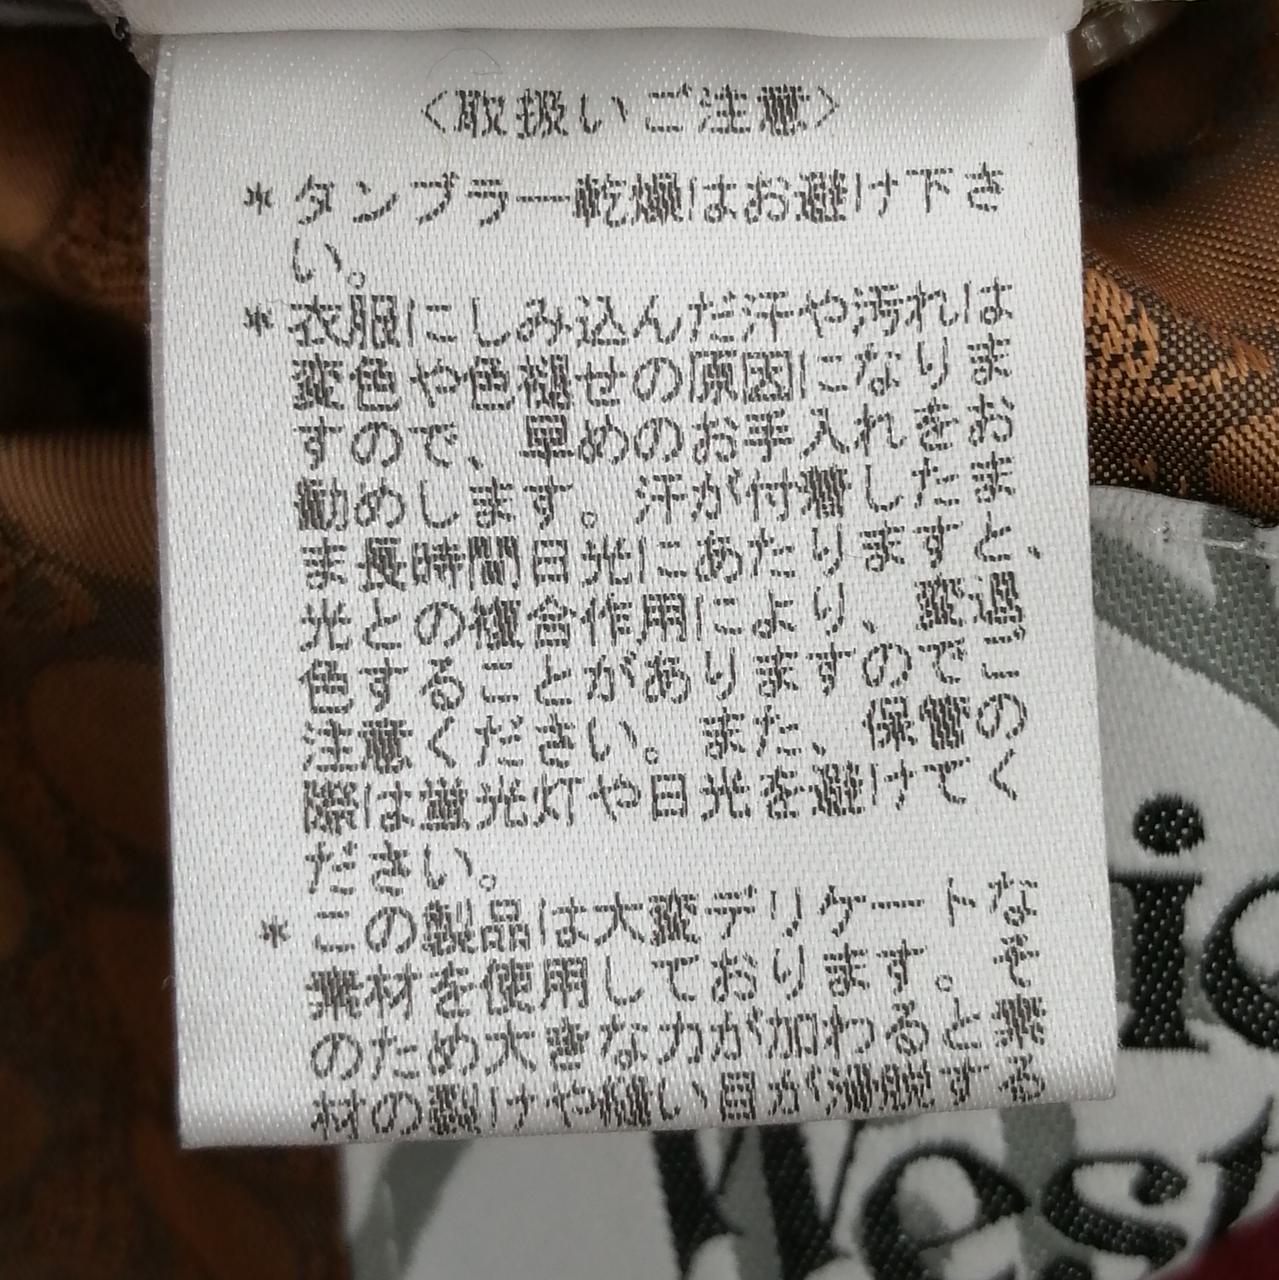 〈取扱いご注意〉
＊タンブラー乾燥はお避け下さ
い。
＊衣服にしみ込んだ汗や汚れは
変色や色褪せの原因になりま
すので、早めのお手入れをお
勧めします。汗が付着したま
ま長時間日光にあたりますと、
光との複合作用により、変退
色することがありますのでご
注意ください。また、保管の
際は蛍光灯や日光を避けてく
ださい。
＊この製品は大変デリケートな
素材を使用しております。そ
のため大きな力が加わると素
材の裂けや縫い目が滑脱する
ic
West